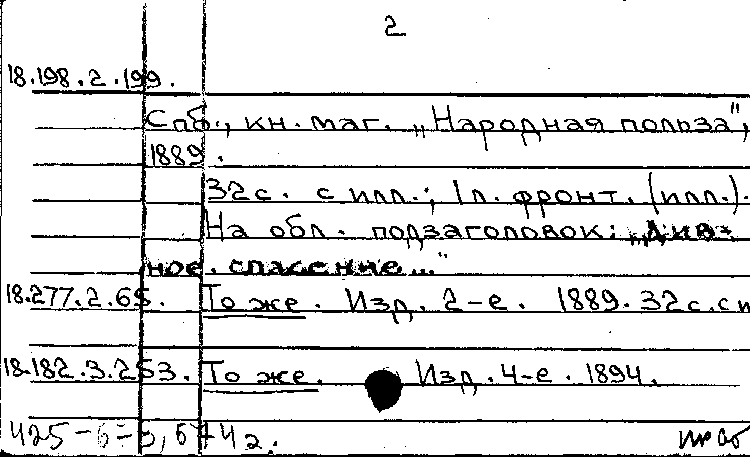 2
18.198.2.199.
Спб., кн. маг. „Народная польза",
1889.
32с. с илл.; 1л. фронт. (илл.).
На обл. подзаголовок: „Див-
ное спасение..."
18.277.2.65. То же. Изд. 2-е. 1889. 32с. с и
18.182.3.253. То же. Изд. 4-е. 1894.